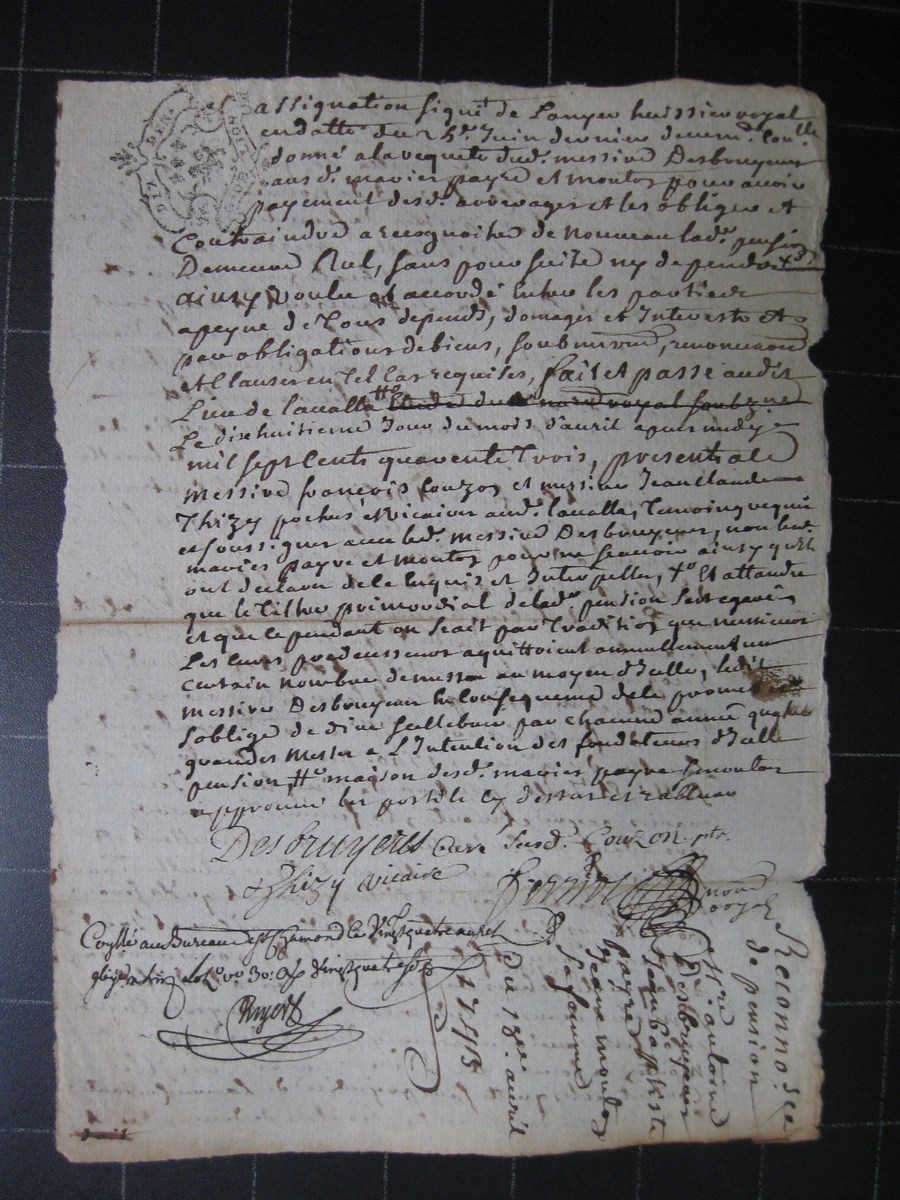 assignation signé de Lanyer huissier royal
en datte du 25e. Juin dernier
donné a la requete dud. messire Desbruyeres
ausd. mariés payre et montes pour avoir
payement desd. arrerages et les obliger et
Contraindre a recognoitre de nouveau lad. pension
Demeure Nul, sans poursuite ny depends
ainsy Voulu et accordé Entre les parties
a peyne de tous depends, domages et Interests et
par obligations de biens, soubmissions, renonciations
et Clauses en tel cas requises, fait et passé audit
Lieu de Lavalla royal soubzné
Le dixhuitieme Jour du mois d'avril apres midy
mil sept Cents quarente trois, presents a le
Messire françois Couzon et messire Jean Claude
Thizy pretres et vicaires aud. Lavalla, Temoins requis
et soussignés avec led. messire Desbruyeres, non lesd.
mariés payre et montes pour ne scavoir ainsy qu'ils
ont declaré de ce Enquis et Interpellés, Et attandu
que le tiltre primordial de lad. pension s'est egaré
et que cependant on scait par tradition que messieurs
Les Curés predecesseurs aquittoient annuellement un
certain nombre de messes au moyen d'Icelle, ledit
messire Desbruyeres En Consequence de ce promet et
s'oblige de dire Cellebrer par chacune année quatre
grandes Messes a L'Intention des fondateurs d'Icelle
pension, maison desd. mariés payre & montes
approuvé les postile cy dessus et ratture
Desbruyeres Curé susd. Couzon ptre.
Thizy vicaire
Ferriol nore. royal
Controllé au Bureau de st Chamond le Vingt quatre avril
vo 30. Vingt quatre sols
Royer
Reconnoisce
de pension
Mre antoine
Desbruyeres
Jean baptiste
payre
Jeanne montes
sa femme
Du 18e. avril
1743